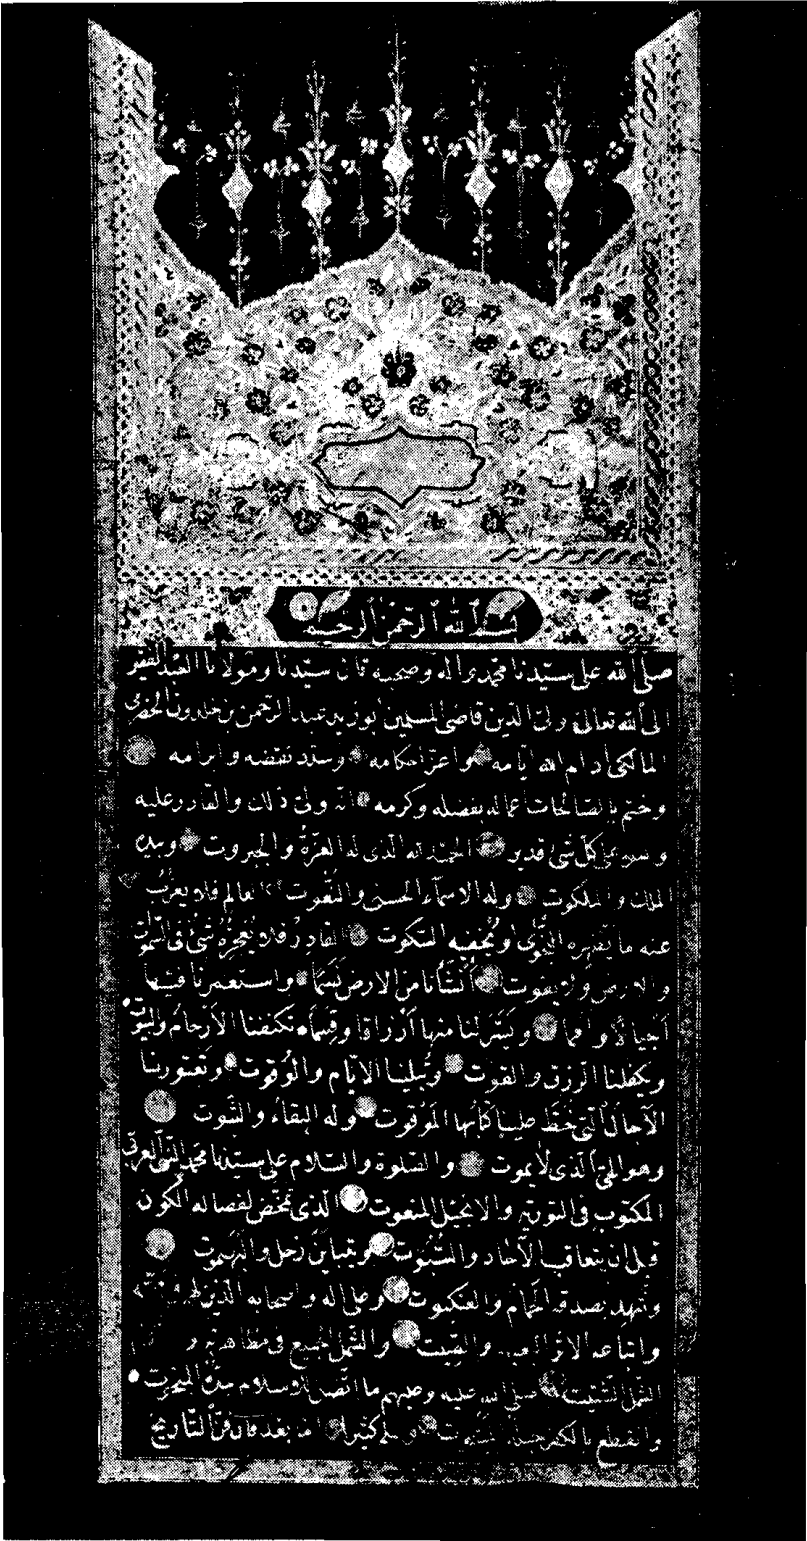 بسم الله الرحمن الرحيم
صلى الله على سيدنا محمد واله وصحبه قال سيدنا ومولانا العبد الفقير
الى الله تعالى ولى الدين قاضى المسلمين ابو زيد عبد الرحمن بن خلدون الحضرمى
المالكى ادام الله ايامه واعز احكامه وسدد نقضه وابرامه
وختم بالصالحات اعماله بفضله وكرمه انه ولى ذلك والقادر عليه
وهو على كل شئ قدير الحمد لله الذى له العزة والجبروت وبيده
الملك والملكوت وله الاسمآء الحسنى والنعوت العالم فلا يعزب
عنه ما تظهره النجوى او يخفيه السكوت القادر فلا يعجزه شئ فى السموات
والارض ولا يفوت أنشأنا من الارض نسما واستعمرنا فيها
اجيالا وامما ويسر لنا منها ارزاقا وقسما تكنفنا الارحام والبيوت
ويكفلنا الرزق والقوت وتبلينا الايام والوقوت وتعتورنا
الآجال التى خط علينا كتابها الموقوت وله البقاء والثبوت
وهو الحى الذى لا يموت والصلوة والسلام على سيدنا محمد النبى العربى
المكتوب فى التورية والانجيل المنعوت الذى تمخض لفصاله الكون
قبل ان تتعاقب الآحاد والسبوت ويتباين زحل والبهموت
وشهد بصدقه الحمام والعنكبوت وعلى اله واصحابه الذين
واتباعه الاثر والصيت والشمل الجميع فى مظاهرته و
الشمل الشتيت صلى الله عليه وعليهم ما اتصل بالاسلام
وانقطع بالكفر حبله المبتوت وسلم كثيرا اما بعد فان فن التاريخ